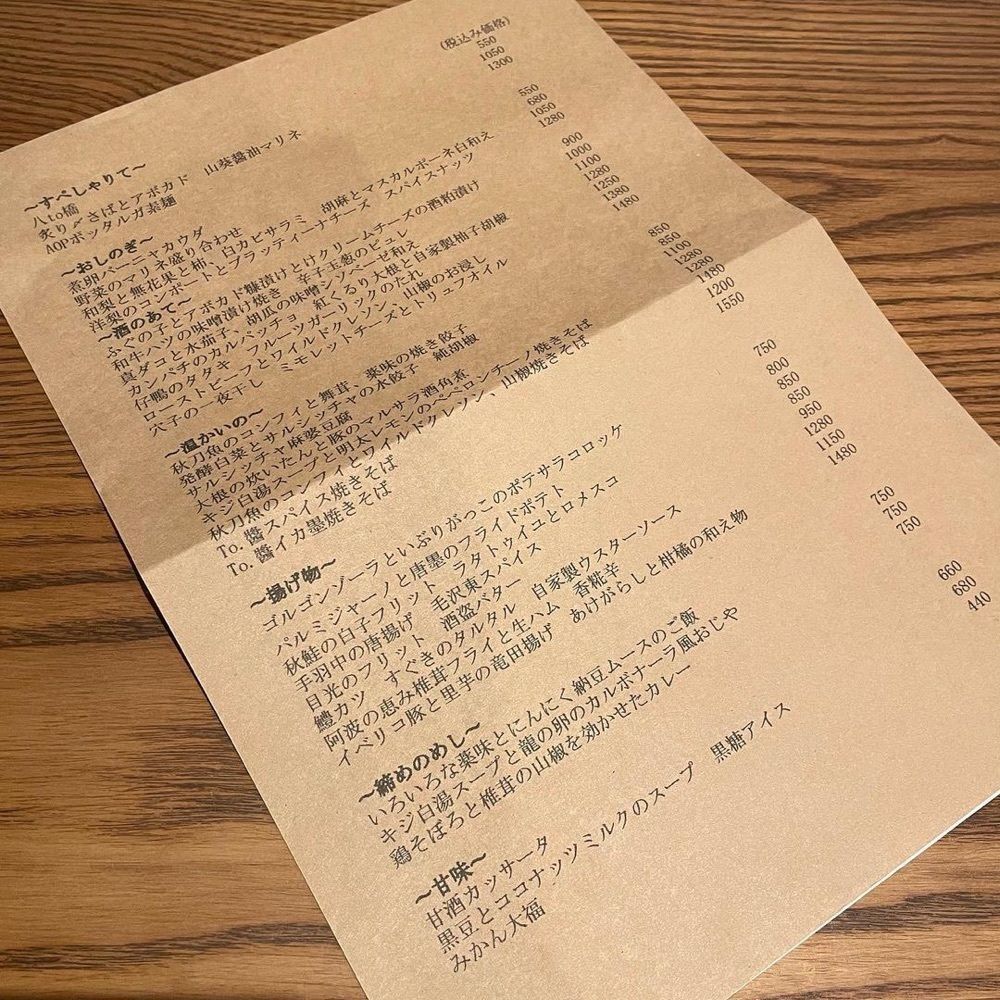 (税込み価格)
~すぺしゃりて~
八to橋 550
炙り〆さばとアボカド 山葵醤油マリネ 1050
AOPボッタルガ素麺 1300
~おしのぎ~
煮卵バーニャカウダ 550
野菜のマリネ盛り合わせ 680
和梨と無花果と柿、白カビサラミ 胡麻とマスカルポーネ白和え 1050
洋梨のコンポートとブラッティーナチーズ スパイスナッツ 1280
~酒のあて~
ふぐの子とアボカド糠漬けとけクリームチーズの酒粕漬け 900
和牛ハツの味噌漬け焼き 辛子玉葱のピュレ 1000
真ダコと水茄子、胡瓜の味噌シソベーゼ和え 1100
カンパチのカルパッチョ 紅くるり大根と自家製柚子胡椒 1280
仔鴨のタタキ フルーツガーリックのたれ 1250
ローストビーフとワイルドクレソン、山椒のお浸し 1380
穴子の一夜干し ミモレットチーズとトリュフオイル 1480
~温かいの~
秋刀魚のコンフィと舞茸、薬味の焼き餃子 850
発酵白菜とサルシッチャの水餃子 純胡椒 850
サルシッチャ麻婆豆腐 1100
大根の炊いたんと豚のマルサラ酒角煮 1280
キジ白湯スープと明太レモンのペペロンチーノ焼きそば 1280
秋刀魚のコンフィとワイルドクレソン、山椒焼きそば 1480
To.醬スパイス焼きそば 1200
To.醬イカ墨焼きそば 1550
~揚げ物~
ゴルゴンゾーラといぶりがっこのポテサラコロッケ 750
パルミジャーノと唐墨のフライドポテト 800
秋鮭の白子フリット ラタトゥイユとロメスコ 850
手羽中の唐揚げ 毛沢東スパイス 850
目光のフリット 酒盗バター 950
鱧カツ すぐきのタルタル 自家製ウスターソース 1280
阿波の恵み椎茸フライと生ハム 香糀辛 1150
イベリコ豚と里芋の竜田揚げ あけがらしと柑橘の和え物 1480
~締めのめし~
いろいろな薬味とにんにく納豆ムースのご飯 750
キジ白湯スープと龍の卵のカルボナーラ風おじや 750
鶏そぼろと椎茸の山椒を効かせたカレー 750
~甘味~
甘酒カッサータ 660
黒豆とココナッツミルクのスープ 黒糖アイス 680
みかん大福 440